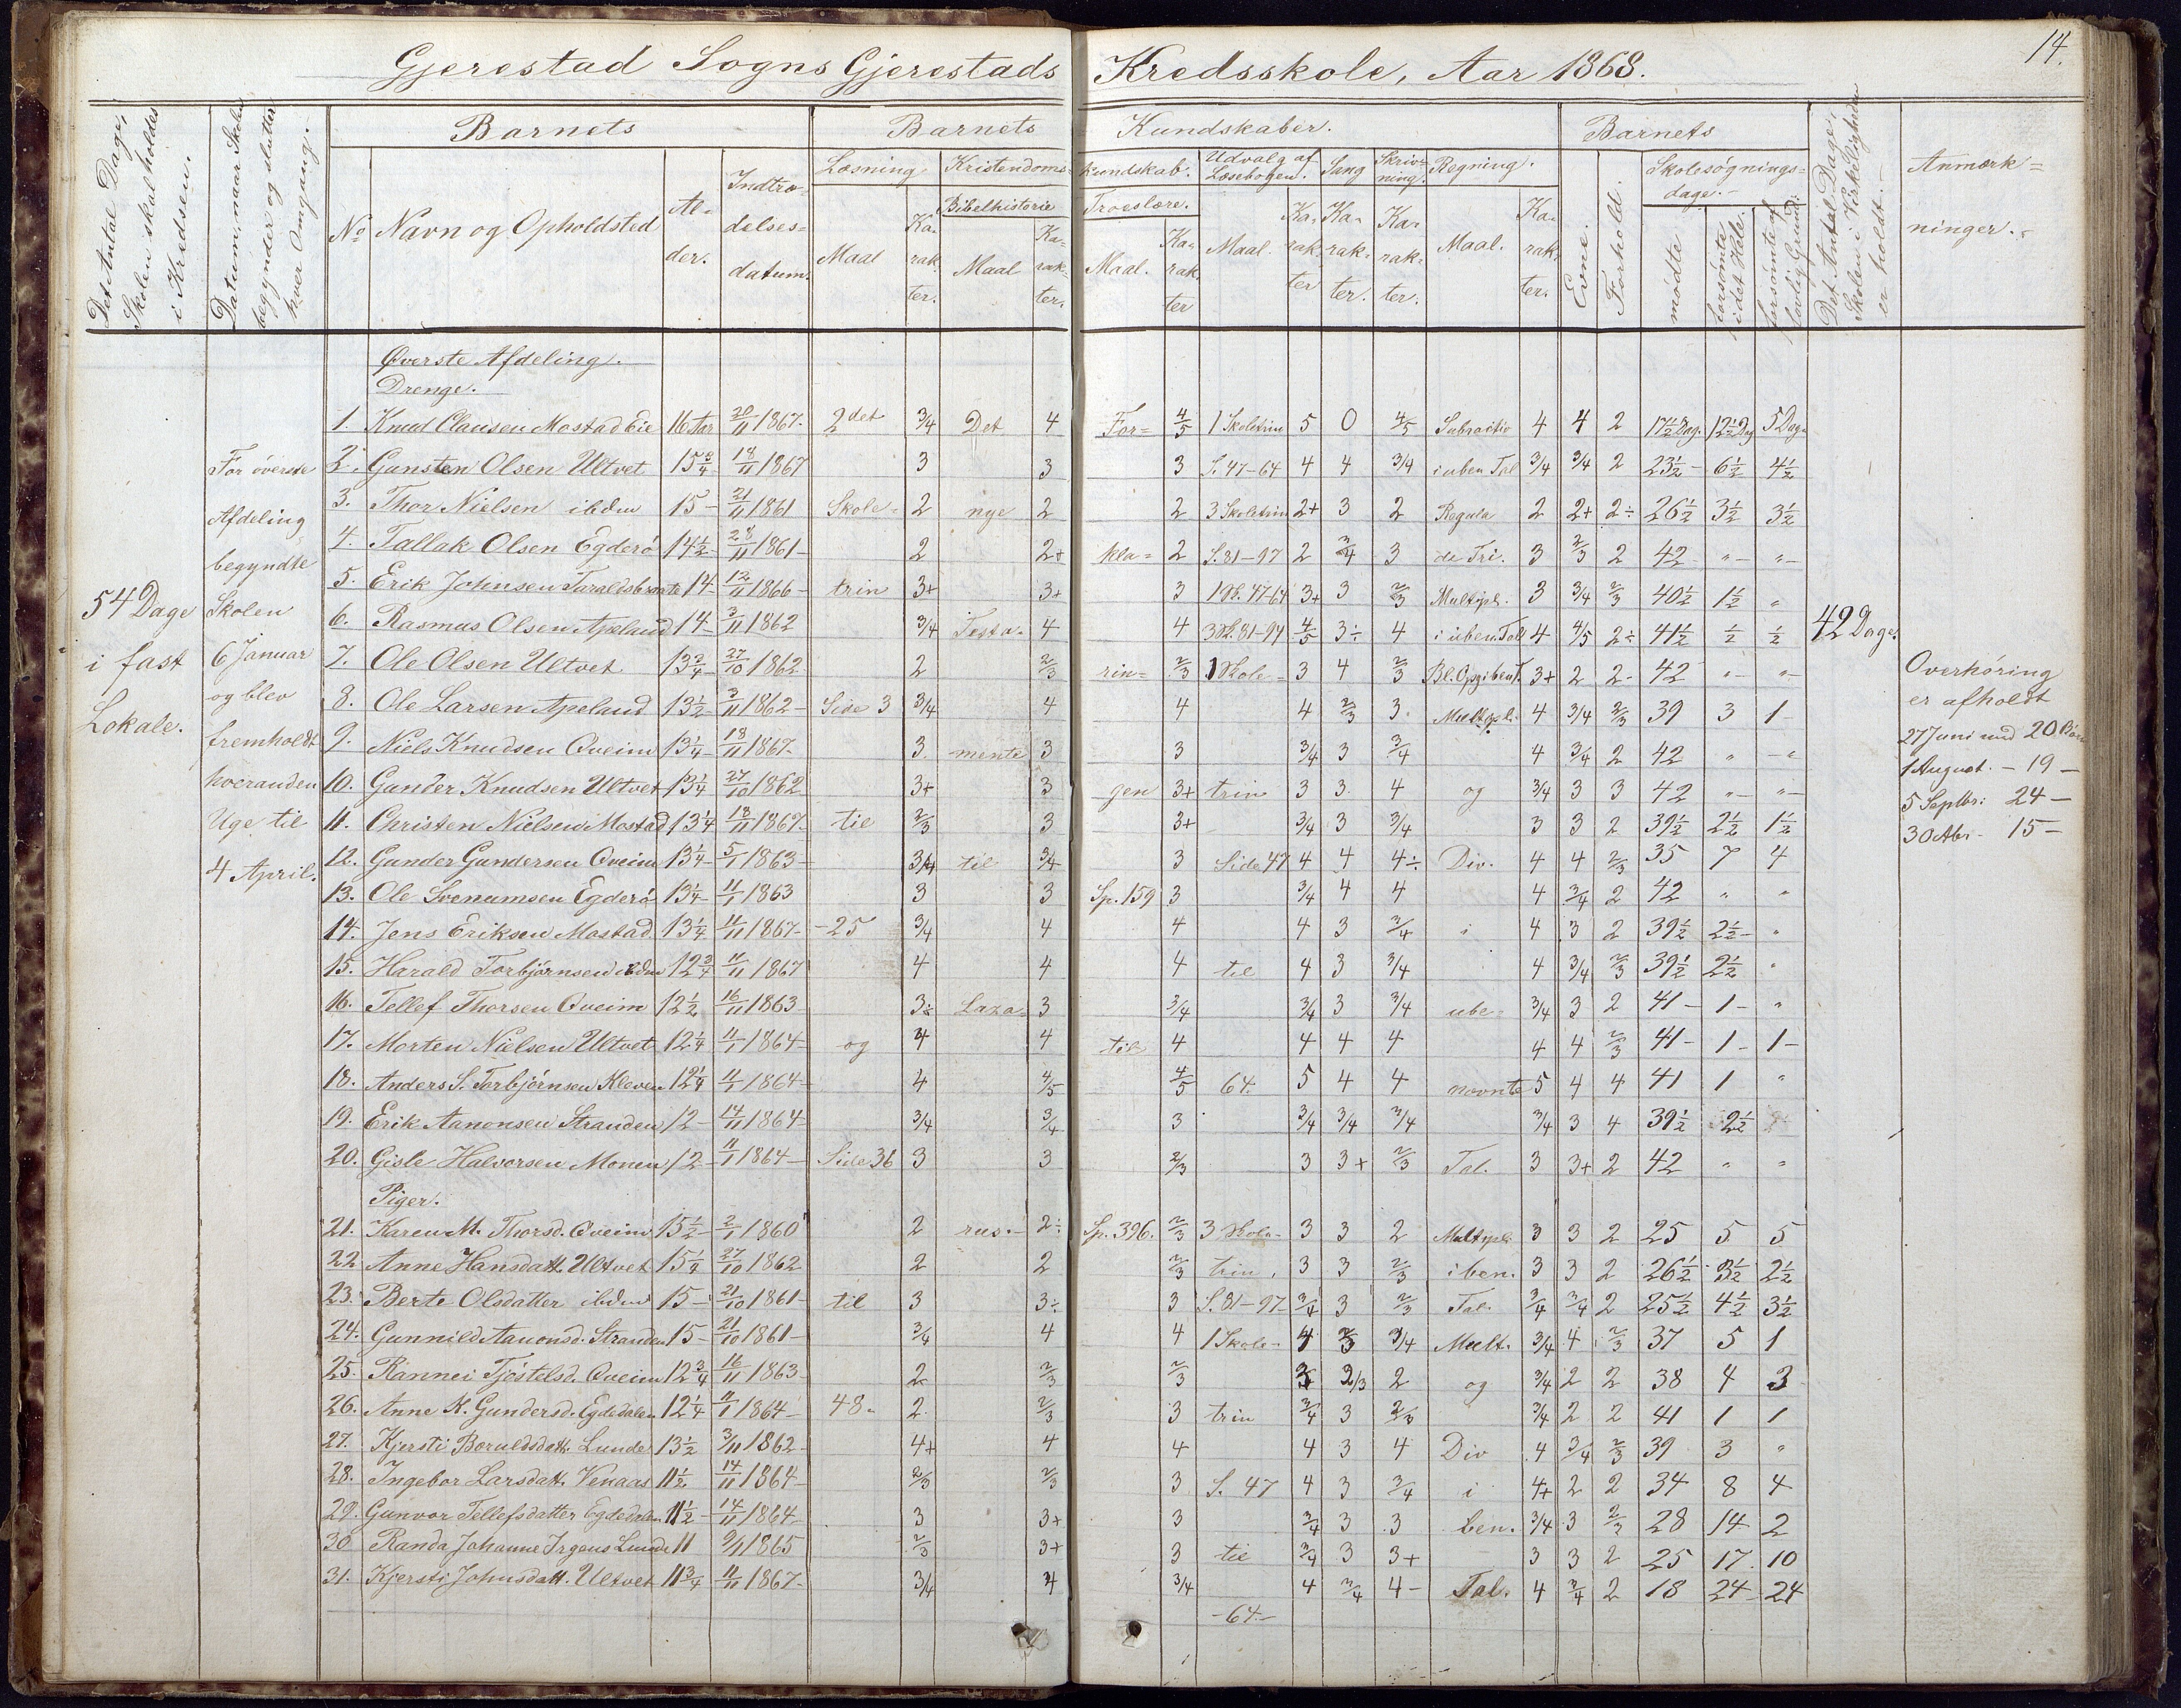 14.
Gjerestad Sogns Gjerestads Kredsskole, Aar 1868.
Det Antal Dage, Skolen skal holdes i Kredsen.
Datum, naar Skolen begynder og slutter hver Omgang.
Barnets
Barnets Kundskaber.
Barnets
Det Antal Dage, Skolen i Virkeligheden er holdt.
Anmærkninger.
No Navn og Opholdsted Alder. Indtrædelsesdatum.
Læsning Kristendomskundskab. Udvalg af Læsebogen. Sang Skrivning. Regning.
Bibelhistorie Troeslære.
Maal Karakter. Maal Karakter. Maal. Karakter Maal. Karakter Karakter. Karakter. Maal. Karakter.
Evne. Forhold. Skolesøgningsdage.
mødte forsømte i det Hele. forsømte af lovlig Grund.
54 Dage i fast Lokale.
For øverste Afdeling begyndte Skolen 6 Januar og blev fremholdt hveranden Uge til 4 April.
Øverste Afdeling.
Drenge.
1. Knud Clausen Mostad Eie 16 Aar 20/11 1867. 2det 3/4 Det 4 For= 4/5 1 Skoletrin 5 0 4/5 Subractio 4 4 2 17½ Dag. 12½ Dag 5 Dag
2. Gunsten Olsen Ultvet 15¾ 18/11 1867 3 3 3 S. 47-64 4 4 3/4 i uben Tal 3/4 3/4 2 23½ 6½ 4½
3. Thor Nielsen ibdm 15 21/11 1861 Skole= 2 nye 2 2 3 Skoletrin 2+ 3 2 Regula 2 2+ 2÷ 26½ 3½ 3½
4. Tallak Olsen Egderø 14½ 28/11 1861 2 2+ kla= 2 S. 81-97 2 3/4 3 de Tri. 3 2/3 2 42 " "
5. Erik Johnsen Taraldsbraate 14 12/11 1866 trin 3+ 3+ 3 1 Sk. 47-64 3+ 3 2/3 Multipl. 3 3/4 2/3 40½ 1½ "
6. Rasmus Olsen Apeland 14 3/11 1862 3/4 Testa= 4 4 3 Sk. 81-97 4/5 3÷ 4 i uben. Tal 4 4/5 2÷ 41½ ½ ½
7. Ole Olsen Ultvet 13¾ 27/10 1862 2 2/3 rin= 2/3 1 Skole= 3 4 2/3 3+ 2 2 42 " "
8. Ole Larsen Apeland 13½ 3/11 1862 Side 3 3/4 4 4 4 2/3 3 Multipl. 4 3/4 2/3 39 3 1
9. Niels Knudsen Qveim 13¼ 18/11 1867. 3 mente 3 3 3/4 3 3/4 4 3/4 2 42 " "
10. Gunder Knudsen Ultvet 13¼ 27/10 1862 3+ 3 gen 3+ trin 3 3 4 og 3/4 3 3 42 " "
11. Christen Nielsen Mostad 13¼ 18/11 1867. til 2/3 3 3+ 3/4 3 3/4 3 3 2 39½ 2½ 1½
12. Gunder Gundersen Qveim 13¼ 5/1 1863 3/4 til 3/4 3 Side 47 4 4 4÷ Div. 4 4 2/3 35 7 4
13. Ole Svenumsen Egderø 13¼ 11/1 1863 3 3 Sp. 159 3 3/4 4 4 4 3/4 2 42 " "
14. Jens Eriksen Mostad 13¼ 11/11 1867 -25 3/4 4 4 4 3 3/4 i 4 3 2 39½ 2½ "
15. Harald Torbjørnsen ibdm 12¾ 11/11 1867 4 4 4 til 4 3 3/4 4 3/4 2/3 39½ 2½ "
16. Tellef Thorsen Qveim 12½ 16/11 1863 3÷ Laza= 3 3/4 3/4 3 3/4 ube= 3/4 3 2 41 1 "
17. Morten Nielsen Ultvet 12¼ 11/1 1864 og 4 4 til 4 4 4 4 4 4 2/3 41 1 1
18. Anders S. Torbjørnsen Kleven 12¼ 11/1 1864 4 4/5 4/5 64. 5 4 4 nævnte 5 4 4 41 1 "
19. Erik Aanonsen Stranden 12 14/11 1864 3/4 3/4 3 3/4 3/4 3/4 3/4 3 4 39½ 2½
20. Gisle Halvorsen Monen 12 11/1 1864 Side 36 3 3 2/3 3 3+ 2/3 Tal. 3 3+ 2 42 " "
Piger.
21. Karen M. Thorsd. Qveim 15½ 2/1 1860 2 rus. 2÷ Sp. 396. 2/3 3 Skole- 3 3 2 Multipl. 3 3 2 25 5 5
22 Anne Hansdatt. Ultvet 15¼ 27/10 1862 2 2 2/3 trin, 3 3 2/3 i ben. 3 3 2 26½ 3½ 2½
23. Berte Olsdatter ibdm 15 21/10 1861 til 3 3÷ 3 S. 81-97 3/4 3 2/3 Tal. 3/4 3/4 2 25½ 4½ 3½
24. Gunnild Aanonsd. Stranden 15 21/10 1861 3/4 4 4 1 Skole- 4 2/3 3/4 Mult. 3/4 4 2/3 37 5 1
25. Rannei Tjøstelsd. Qveim 12¾ 16/11 1863 2 2/3 2/3 2/3 2 og 3/4 2 2 38 4 3
26. Anne K. Gundersd. Egdedalen 12¼ 11/1 1864 48. 2 2/3 3 trin 3/4 3 2/3 3/4 2 2 41 1 1
27. Kjersti Boruldsdatt. Lunde 13½ 3/11 1862 4+ 4 4 4 3 4 Div 4 3/4 2/3 39 3 "
28. Ingebor Larsdatt. Venaas 11½ 14/11 1864 2/3 2/3 3 S. 47 4 3 3/4 i 4+ 2 2 34 8 4
29. Gunvor Tellefsdatter Egdedalen 11½ 14/11 1864 3 3+ 3 3/4 3 3 ben. 3/4 3 2/3 28 14 2
30. Randa Johanne Irgens Lunde 11 9/11 1865 2/3 3+ 3 til 3/4 3 3+ 3 3 2 25 17 10
31. Kjersti Johnsdatt. Ultvet 11¾ 11/11 1867 3/4 4 3/4 4 3/4 4- Tal. 4 3/4 2 18 24 24
-64-
42 Dage.
Overhøring
er afholdt
27 Juni med 20 Børn
1 August. - 19 -
5 Septbr: 24 -
15 -